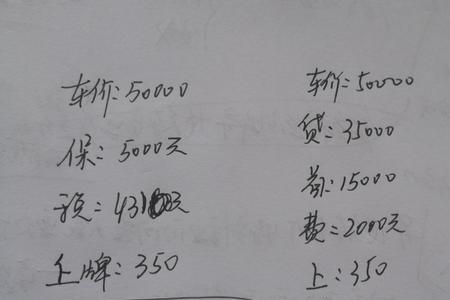 车价:50000
保:5000元
税=4310元
上牌:350
车价:50000
贷:35000
首:15000
费=2000元
上:350